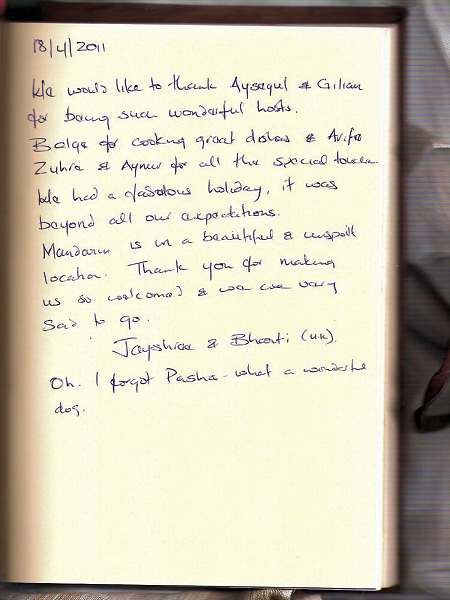 18/4/2011
We would like to thank Aysegul & Gilian
for being such wonderful hosts.
Belge for cooking great dishes & Arife
Zuhre & Aynur for all the special touches.
We had a fabulous holiday, it was
beyond all our expectations.
Mandarin is in a beautiful & unspoilt
location. Thank you for making
us so welcomed & we are very
sad to go.
Jayshree & Bharti (UK).
Oh. I forgot Pasha - what a wonderful
dog.